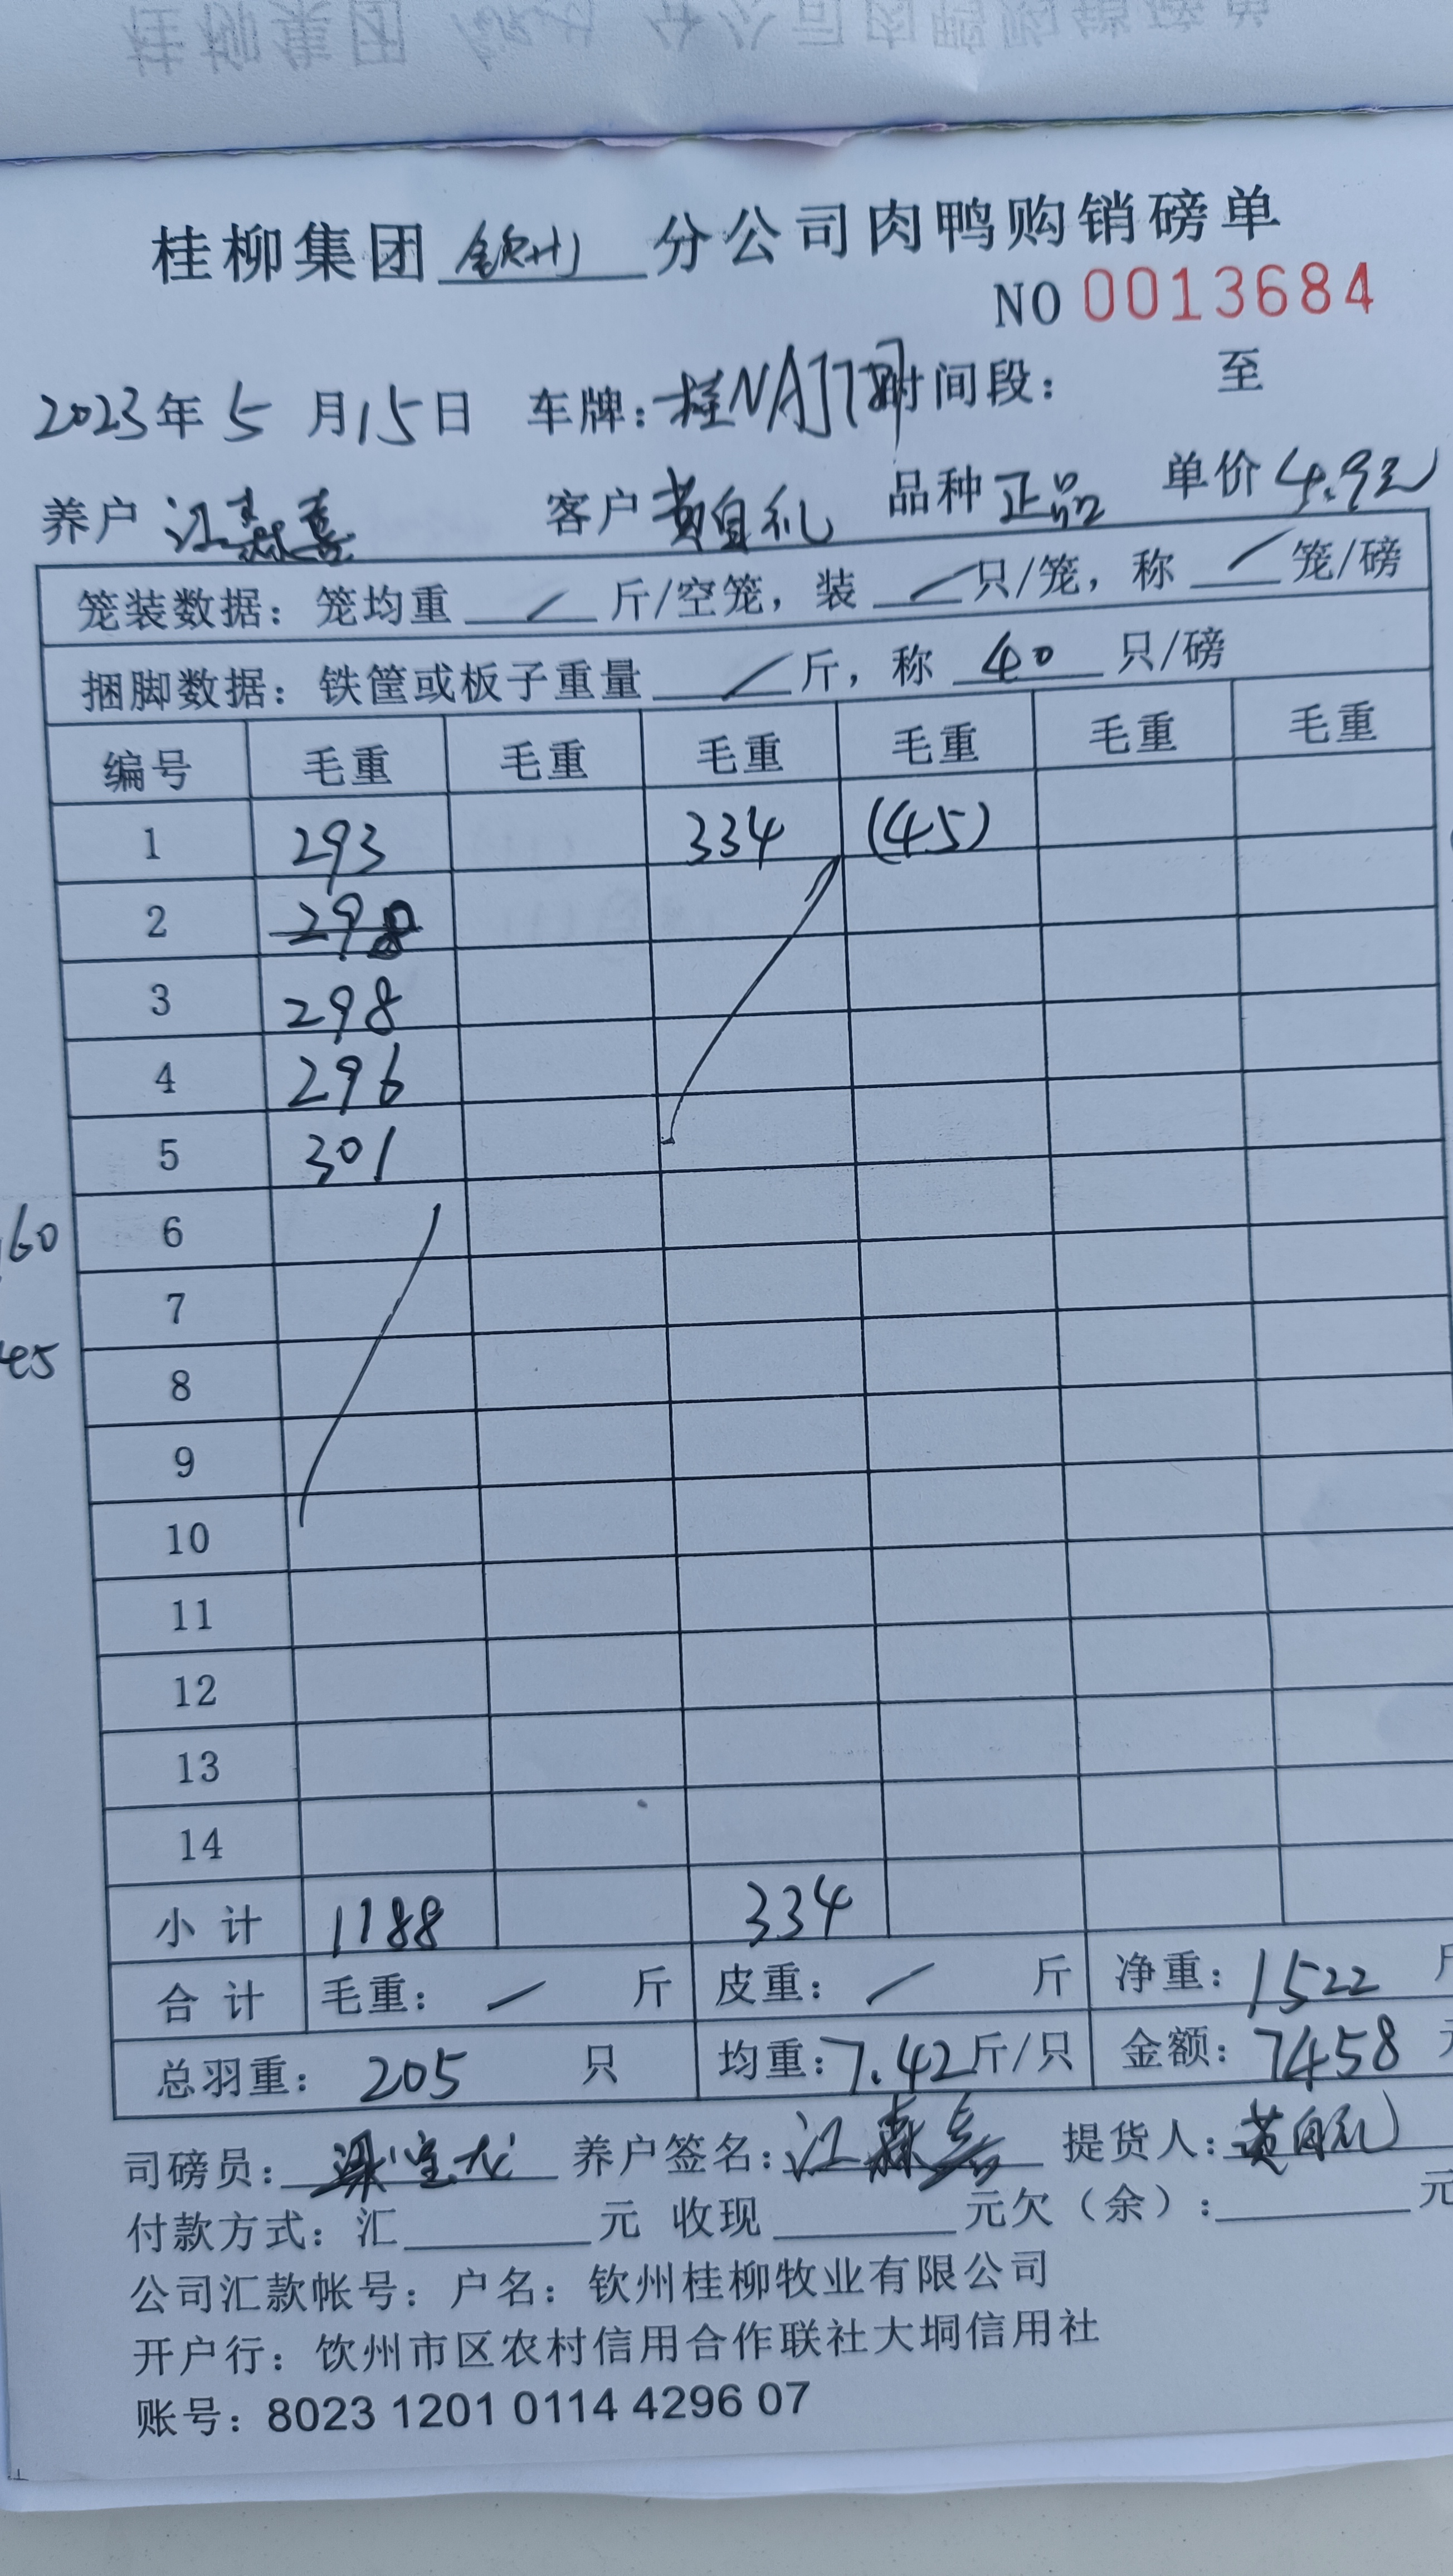 桂柳集团 钦州 分公司肉鸭购销磅单
NO 0013684
2023年 5 月 15 日 车牌: 桂NA 时间段: 至
养户 江森 客户 黄自礼 品种 正品 单价 4.9元
笼装数据: 笼均重 / 斤/空笼, 装 / 只/笼, 称 / 笼/磅
捆脚数据: 铁筐或板子重量 / 斤, 称 40 只/磅
编号 毛重 毛重 毛重 毛重 毛重 毛重
1 293 334 (45)
2
3 298
4 296
5 301
60 6
7
45 8
9
10
11
12
13
14
小计 1188 334
合计 毛重: / 斤 皮重: / 斤 净重: 1522 斤
总羽重: 205 只 均重: 7.42 斤/只 金额: 7458 元
司磅员: 梁宝龙 养户签名: 江森 提货人: 黄自礼
付款方式: 汇 元 收现 元欠（余）: 元
公司汇款帐号: 户名: 钦州桂柳牧业有限公司
开户行: 饮州市区农村信用合作联社大垌信用社
账号: 8023 1201 0114 4296 07